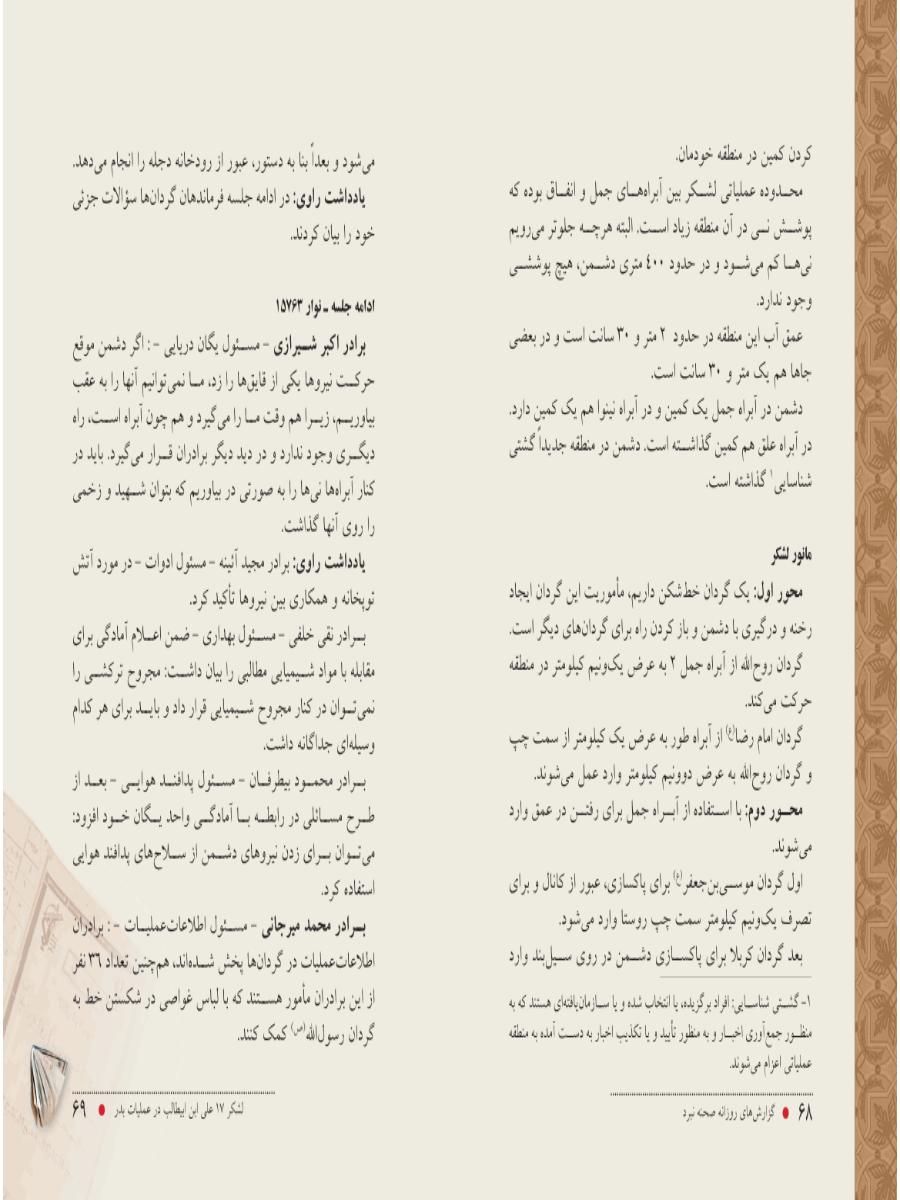 کردن کمین در منطقه خودمان.
محدوده عملیاتی لشکر بین آبراه‌های جمل و انفاق بوده که
پوشش نی در آن منطقه زیاد است. البته هرچه جلوتر می‌رویم
نی‌ها کم می‌شود و در حدود ۴۰۰ متری دشمن، هیچ پوششی
وجود ندارد.
عمق آب این منطقه در حدود ۲ متر و ۳۰ سانت است و در بعضی
جاها هم یک متر و ۳۰ سانت است.
دشمن در آبراه جمل یک کمین و در آبراه نینوا هم یک کمین دارد.
در آبراه علق هم کمین گذاشته است. دشمن در منطقه جدیداً گشتی
شناسایی۱ گذاشته است.
مانور لشکر
محور اول: یک گردان خط‌شکن داریم، مأموریت این گردان ایجاد
رخنه و درگیری با دشمن و باز کردن راه برای گردان‌های دیگر است.
گردان روح‌الله از آبراه جمل ۲ به عرض یک‌ونیم کیلومتر در منطقه
حرکت می‌کند.
گردان امام رضا(ع) از آبراه طور به عرض یک کیلومتر از سمت چپ
و گردان روح‌الله به عرض دوونیم کیلومتر وارد عمل می‌شوند.
محور دوم: با استفاده از آبراه جمل برای رفتن در عمق وارد
می‌شوند.
اول گردان موسی‌بن‌جعفر(ع) برای پاکسازی، عبور از کانال و برای
تصرف یک‌ونیم کیلومتر سمت چپ روستا وارد می‌شود.
بعد گردان کربلا برای پاکسازی دشمن در روی سیل‌بند وارد
۱- گشتی شناسایی: افراد برگزیده، یا انتخاب شده و یا سازمان‌یافته‌ای هستند که به
منظور جمع‌آوری اخبار و به منظور تأیید و یا تکذیب اخبار به دست آمده به منطقه
عملیاتی اعزام می‌شوند.
۶۸ • گزارش‌های روزانه صحنه نبرد
می‌شود و بعداً بنا به دستور، عبور از رودخانه دجله را انجام می‌دهد.
یادداشت راوی: در ادامه جلسه فرماندهان گردان‌ها سؤالات جزئی
خود را بیان کردند.
ادامه جلسه ـ نوار ۱۵۷۶۳
برادر اکبر شیرازی – مسئول یگان دریایی – : اگر دشمن موقع
حرکت نیروها یکی از قایق‌ها را زد، ما نمی‌توانیم آنها را به عقب
بیاوریم، زیرا هم وقت ما را می‌گیرد و هم چون آبراه است، راه
دیگری وجود ندارد و در دید دیگر برادران قرار می‌گیرد. باید در
کنار آبراه‌ها نی‌ها را به صورتی در بیاوریم که بتوان شهید و زخمی
را روی آنها گذاشت.
یادداشت راوی: برادر مجید آئینه – مسئول ادوات – در مورد آتش
توپخانه و همکاری بین نیروها تأکید کرد.
برادر نقی خلفی – مسئول بهداری – ضمن اعلام آمادگی برای
مقابله با مواد شیمیایی مطالبی را بیان داشت: مجروح ترکشی را
نمی‌توان در کنار مجروح شیمیایی قرار داد و باید برای هر کدام
وسیله‌ای جداگانه داشت.
برادر محمود بیطرفان – مسئول پدافند هوایی – بعد از
طرح مسائلی در رابطه با آمادگی واحد یگان خود افزود:
می‌توان برای زدن نیروهای دشمن از سلاح‌های پدافند هوایی
استفاده کرد.
برادر محمد میرجانی – مسئول اطلاعات‌عملیات – : برادران
اطلاعات‌عملیات در گردان‌ها پخش شده‌اند، هم‌چنین تعداد ۳۶ نفر
از این برادران مأمور هستند که با لباس غواصی در شکستن خط به
گردان رسول‌الله(ص) کمک کنند.
لشکر ۱۷ علی ابن ابیطالب در عملیات بدر • ۶۹